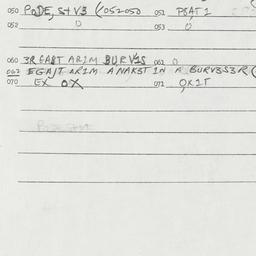 050 PODE, S+V3 (052050 051 PSAT 1
052 0 053 0
060 3REGAST ARIM BURV1S 061 0
062 EGAJT ARIM ANAKST IN A BURVSS3R (
070 EX OX 071 OX1T